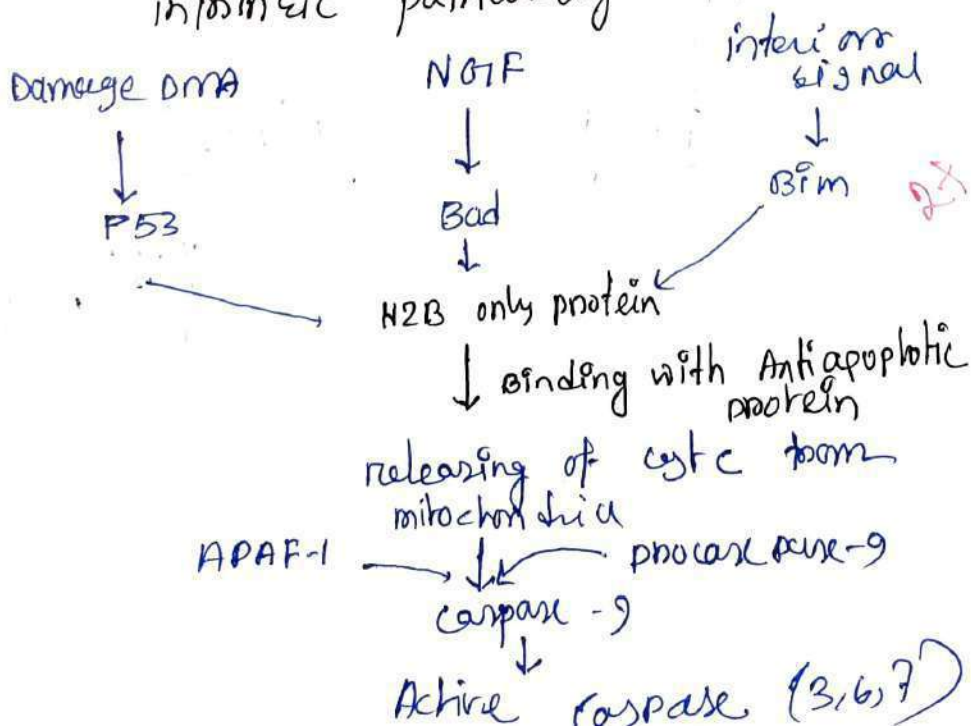 intrinsic pathway
Damage DNA
NGF
interior
signal
Bim
2+
P53
Bad
H2B only protein
Binding with Antiapoptotic
protein
releasing of cyt c from
mitochondria
APAF-1
procaspase-9
caspase -9
Active caspase (3,6,7)